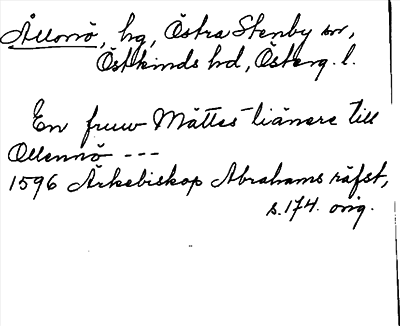 Ållonö, hg, Östra Stenby sn,
Östkinds hd, Österg. l.
En fruw Mättes tiänare till
Ollennö ---
1596 Ärkebiskop Abrahams räfst,
s. 174. orig.